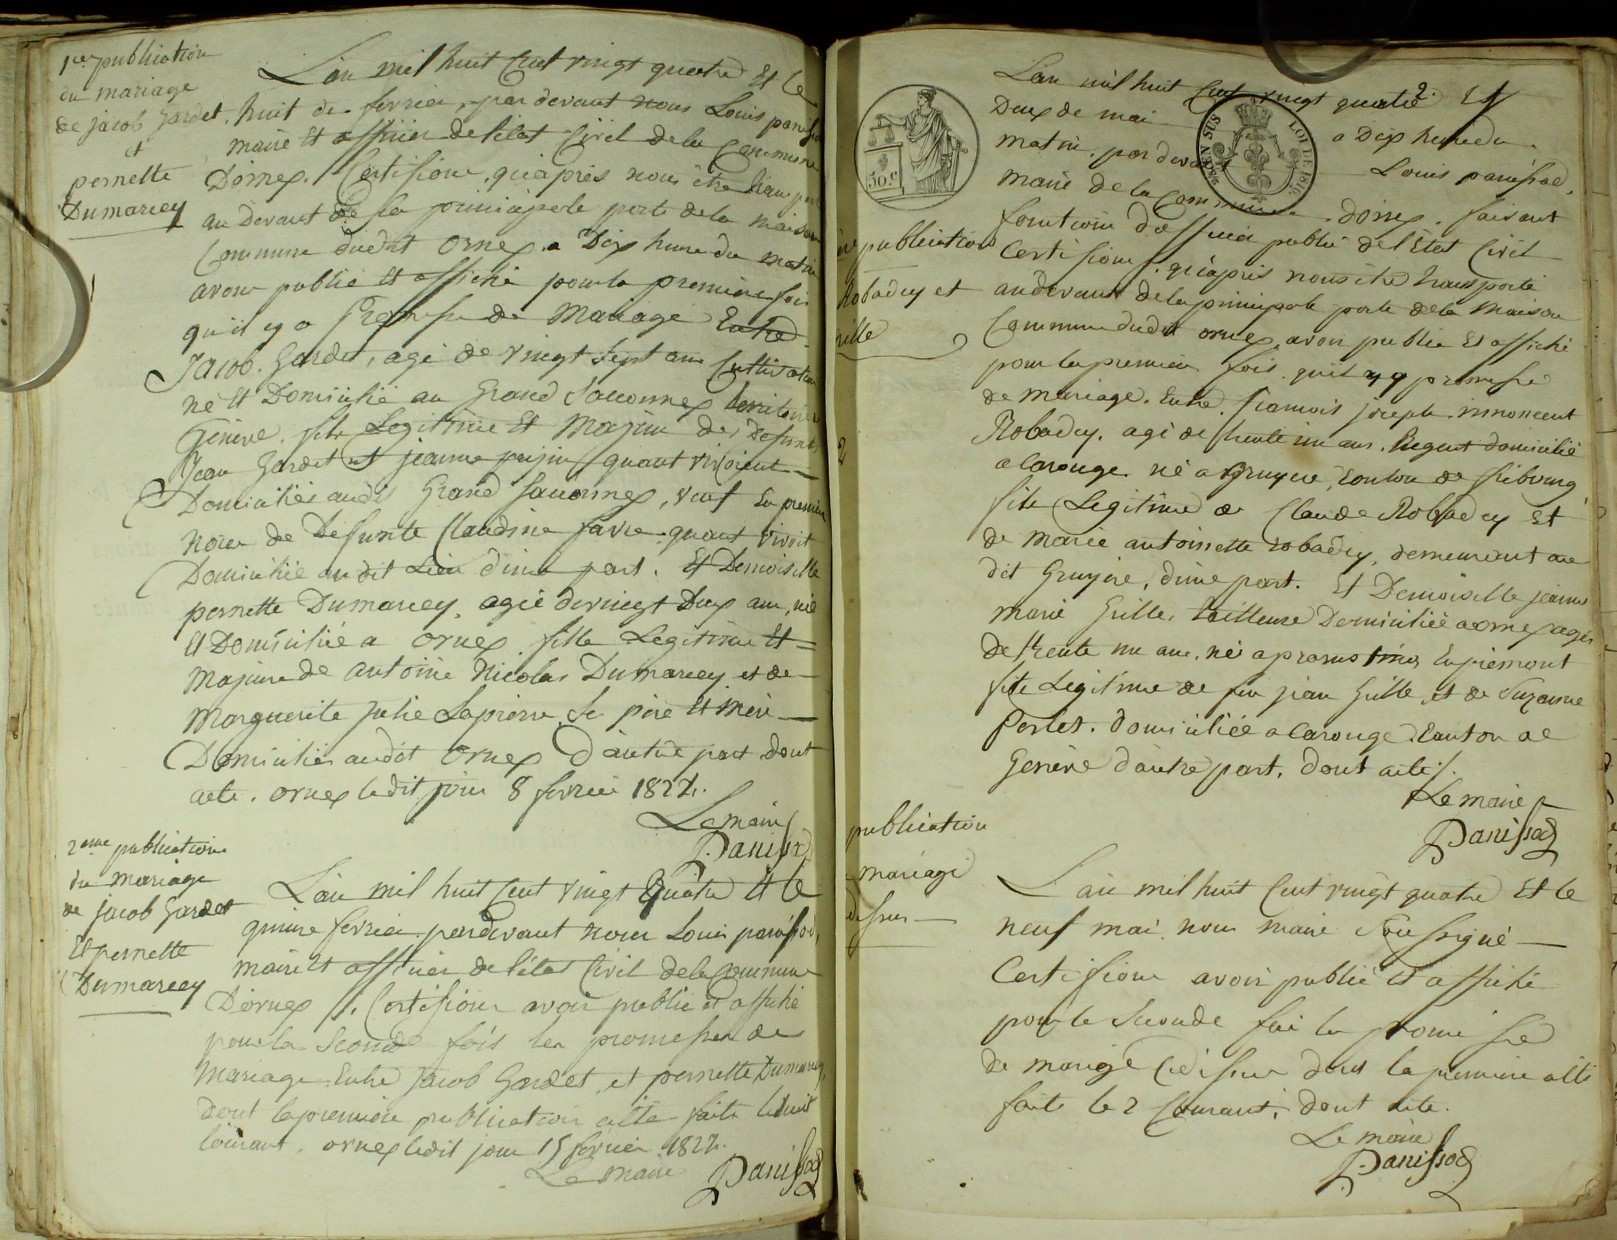 1re publication
du mariage
de jacob Gardet
et
pernette
Dumarcey
L'an mil huit Cent vingt quatre Et le
huit de fevrier, par devant nous Louis
maire Et officier de l'état Civil de la Commune
Dornex. Certifions, qu'après nous être
au Devant de la principale porte de la maison
Commune dudit Ornex a Dix heure du matin
avons publié Et affiché pour la premiere fois
qu'il y a promesse de Mariage Entre
Jacob Gardet, agé de vingt sept ans Cultivateur
né Et Domicilié au Grand Saconnex
Genève. fils Legitime Et Majeur de Defunts
Jean Gardet et jeanne quant vivoient
Domiciliés audit Grand Saconnex, veuf En premier
noces de Defunte Claudine favre quant vivoit
Domiciliée audit Lieu d'une part. Et Demoiselle
pernette Dumarcey, agée de vingt Deux ans, née
Et Domiciliée a Ornex fille Legitime Et
Majeure de antoine Nicolas Dumarcey et de
Marguerite Julie Lapierre, Se père Et mère
Domiciliés audit Ornex D'autre part dont
acte. Ornex ledit jour 8 fevrier 1824.
Le maire
Panissod
2eme publication
du mariage
de jacob Gardet
Et pernette
Dumarcey
L'an mil huit Cent vingt Quatre Et le
quinze fevrier pardevant nous Louis panissod,
maire et officier de l'état Civil de la Commune
D'ornex. Certifions avoir publié et affiché
pour la Seconde fois les promesses de
Mariage Entre Jacob Gardet et pernette Dumarcey
Dont la premiere publication a été faite le huit
Courant. Ornex ledit jour 15 fevrier 1824.
Le maire
Panissod
50 c
LOI DE 1816
publication
Robadey et
Grille
L'an mil huit Cent vingt quatre Et
Deux de mai a Dix heure du
matin, par devant Louis panissod,
maire de la Commune dornex. faisant
fonction d'officier public de l'État Civil
Certifions, qu'après nous être transporté
au devant de la principale porte de la Maison
Commune dudit ornex, avons publié Et affiché
pour la premiere fois qu'il y a promesse
de mariage. Entre francois joseph innoncent
Robadey. agé de trente un ans. Regent domicilié
a Carouge né a Gruyere, Canton de fribourg
fils Legitime de Claude Robadey Et
de marie antoinette robadey, demeurant au
dit Gruyère, d'une part. Et Demoiselle jeanne
marie Grille, tailleuse Domiciliée a ornex agée
de trente un ans, né a En piemont
fille Legitime de feu jean Grille et de Suzanne
Perlet. domiciliée a Carouge Canton de
Genève d'autre part, dont acte.
Le maire
Panissod
publication
mariage
dessus
L'an mil huit Cent vingt quatre Et le
neuf mai nous maire Soussigné
Certifions avoir publié Et affiché
pour le Seconde foi la promesse
de mariage Cidessus dont la premiere a été
faite le 2 Courant, dont acte.
Le maire
Panissod